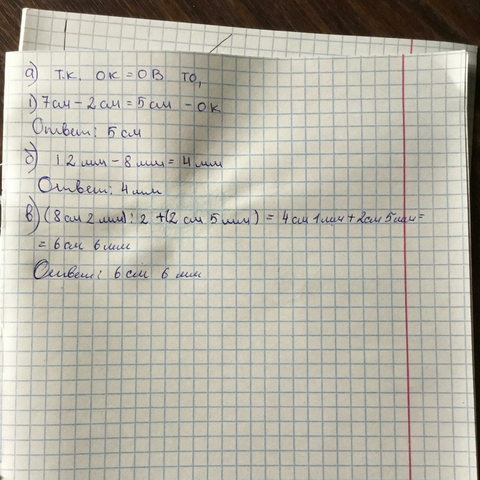 а) т.к. ОК = ОВ то,
1) 7см – 2см = 5см – ОК
Ответ: 5 см
б) 12мм – 8мм = 4мм
Ответ: 4мм
в) (8см 2мм) : 2 + (2 см 5мм) = 4см 1мм + 2см 5мм =
= 6см 6мм
Ответ: 6 см 6 мм